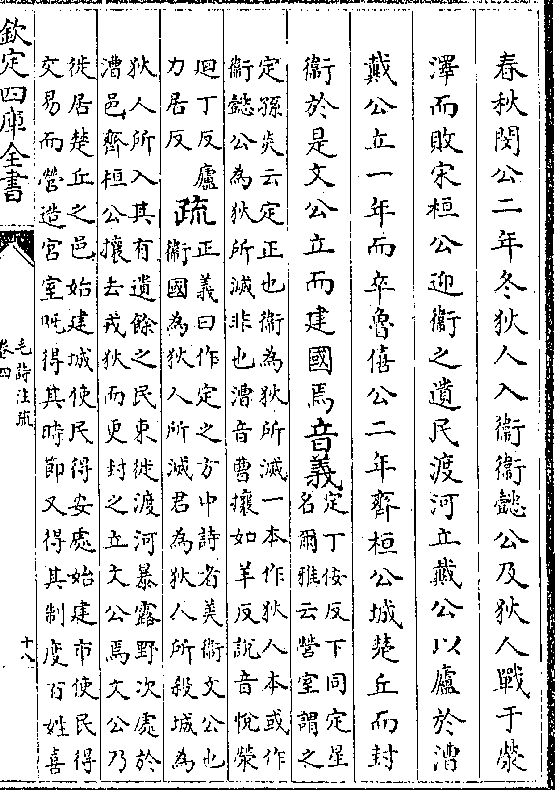 春秋閔公二年冬狄人入衞衞懿公及狄人戰于熒
澤而敗宋桓公迎衞之遺民渡河立戴公以廬於漕
戴公立一年而卒魯僖公二年齊桓公城楚丘而封
衞於是文公立而建國焉音義
定丁佞反下同定星
名爾雅云營室謂之
定孫炎云定正也衞為狄所滅一本作狄人本或作
衞懿公為狄所滅非也漕音曹攘如羊反説音悅熒
迴丁反廬
力居反
疏
正義曰作定之方中詩者美衞文公也
衞國為狄人所滅君為狄人所殺城為
狄人所入其有遺餘之民東徙渡河暴露野次處於
漕邑齊桓公攘去戎狄而更封之立文公焉文公乃
徙居楚丘之邑始建城使民得安處始建市使民得
交易而營造宮室旣得其時節又得其制度百姓喜
欽定四庫全書
毛詩注疏
卷四
十八